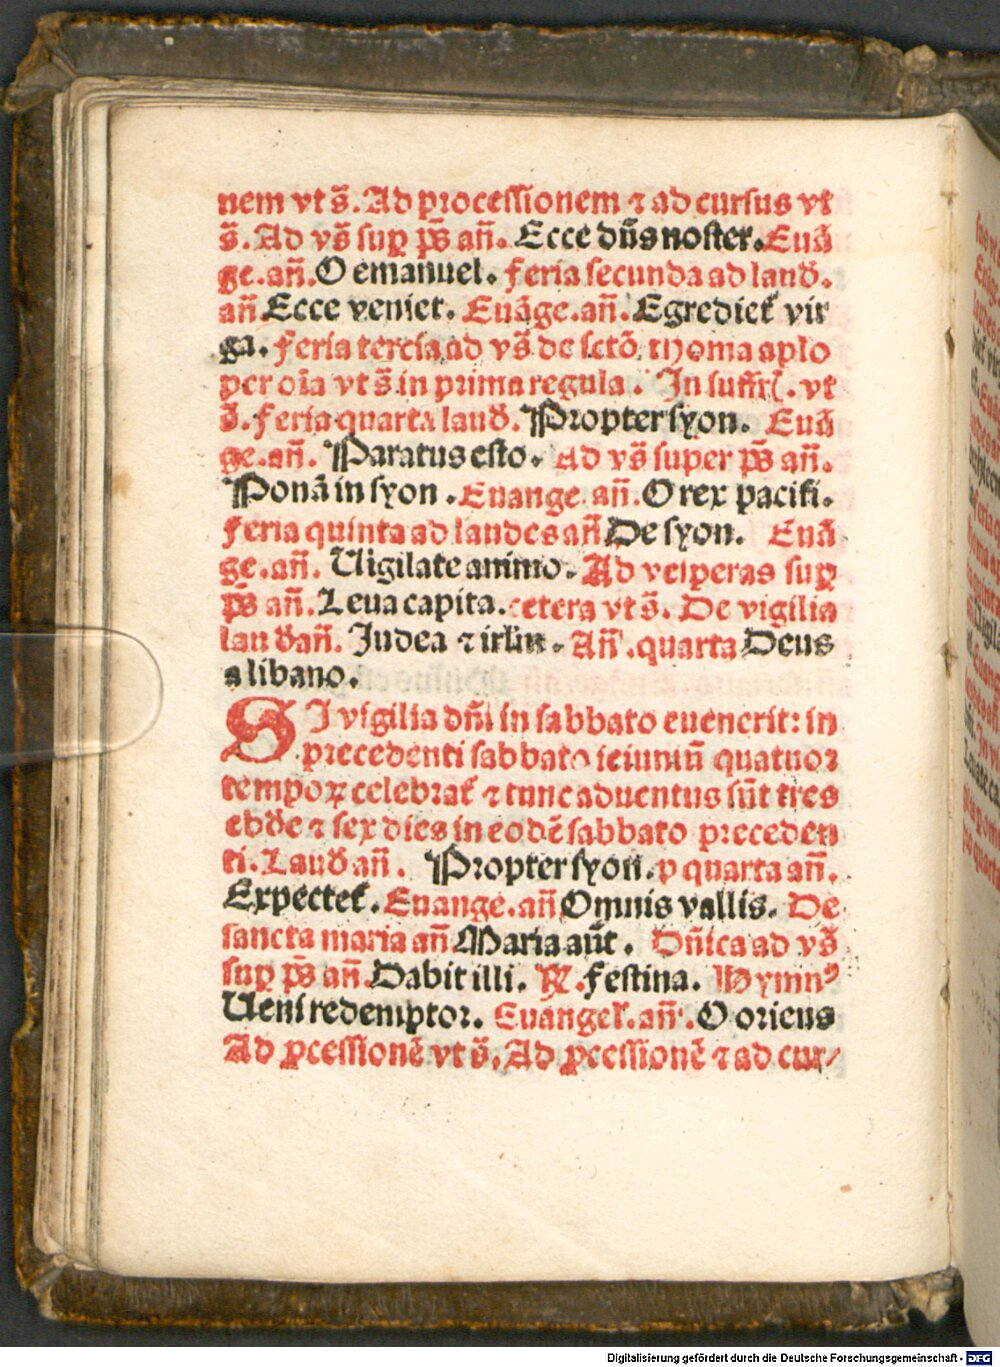 nem vt s̃. Ad processionem ⁊ ad cursus vt
s̃. Ad vs̃ suꝑ ps̃ añ. Ecce dñs noster. Euã
ge. añ. O emanuel. feria secunda ad laud̃.
añ Ecce veniet. Euãge. añ. Egrediet᷑ vir
ga. feria tercia ad vs̃ de sctõ thoma aplo
per oīa vt s̃ in prima regula. In suffr. vt
s̃. feria quarta laud̃. Propter syon. Euã
ge. añ. Paratus esto. Ad vs̃ super ps̃ añ.
Ponã in syon. Euange. añ. O rex pacifi.
feria quinta ad laudes añ De syon. Euã
ge. añ. Uigilate animo. Ad vesperas suꝑ
ps̃ añ. Leua capita. cetera vt s̃. De vigilia
laud̃ añ. Judea ⁊ irl̃m. Añ. quarta Deus
a libano.
SI vigilia dñi in sabbato euenerit: in
precedenti sabbato ieiuniũ quatuor
tempoꝝ celebrat᷑ ⁊ tunc aduentus sũt tres
ebd̃e ⁊ sex dies in eodẽ sabbato preceden
ti. Laud̃ añ. Propter syon. p quarta añ.
Expectet᷑. Euange. añ Omnis vallis. De
sancta maria añ Maria aũt. Dñica ad vs̃
suꝑ ps̃ añ. Dabit illi. R̃. festina. Hymnꝰ
Ueni redemptor. Euangel᷑. añ. O oriens
Ad ꝓcessionẽ vt s̃. Ad ꝓcessionẽ ⁊ ad cur/
Digitalisierung gefördert durch die Deutsche Forschungsgemeinschaft - DFG